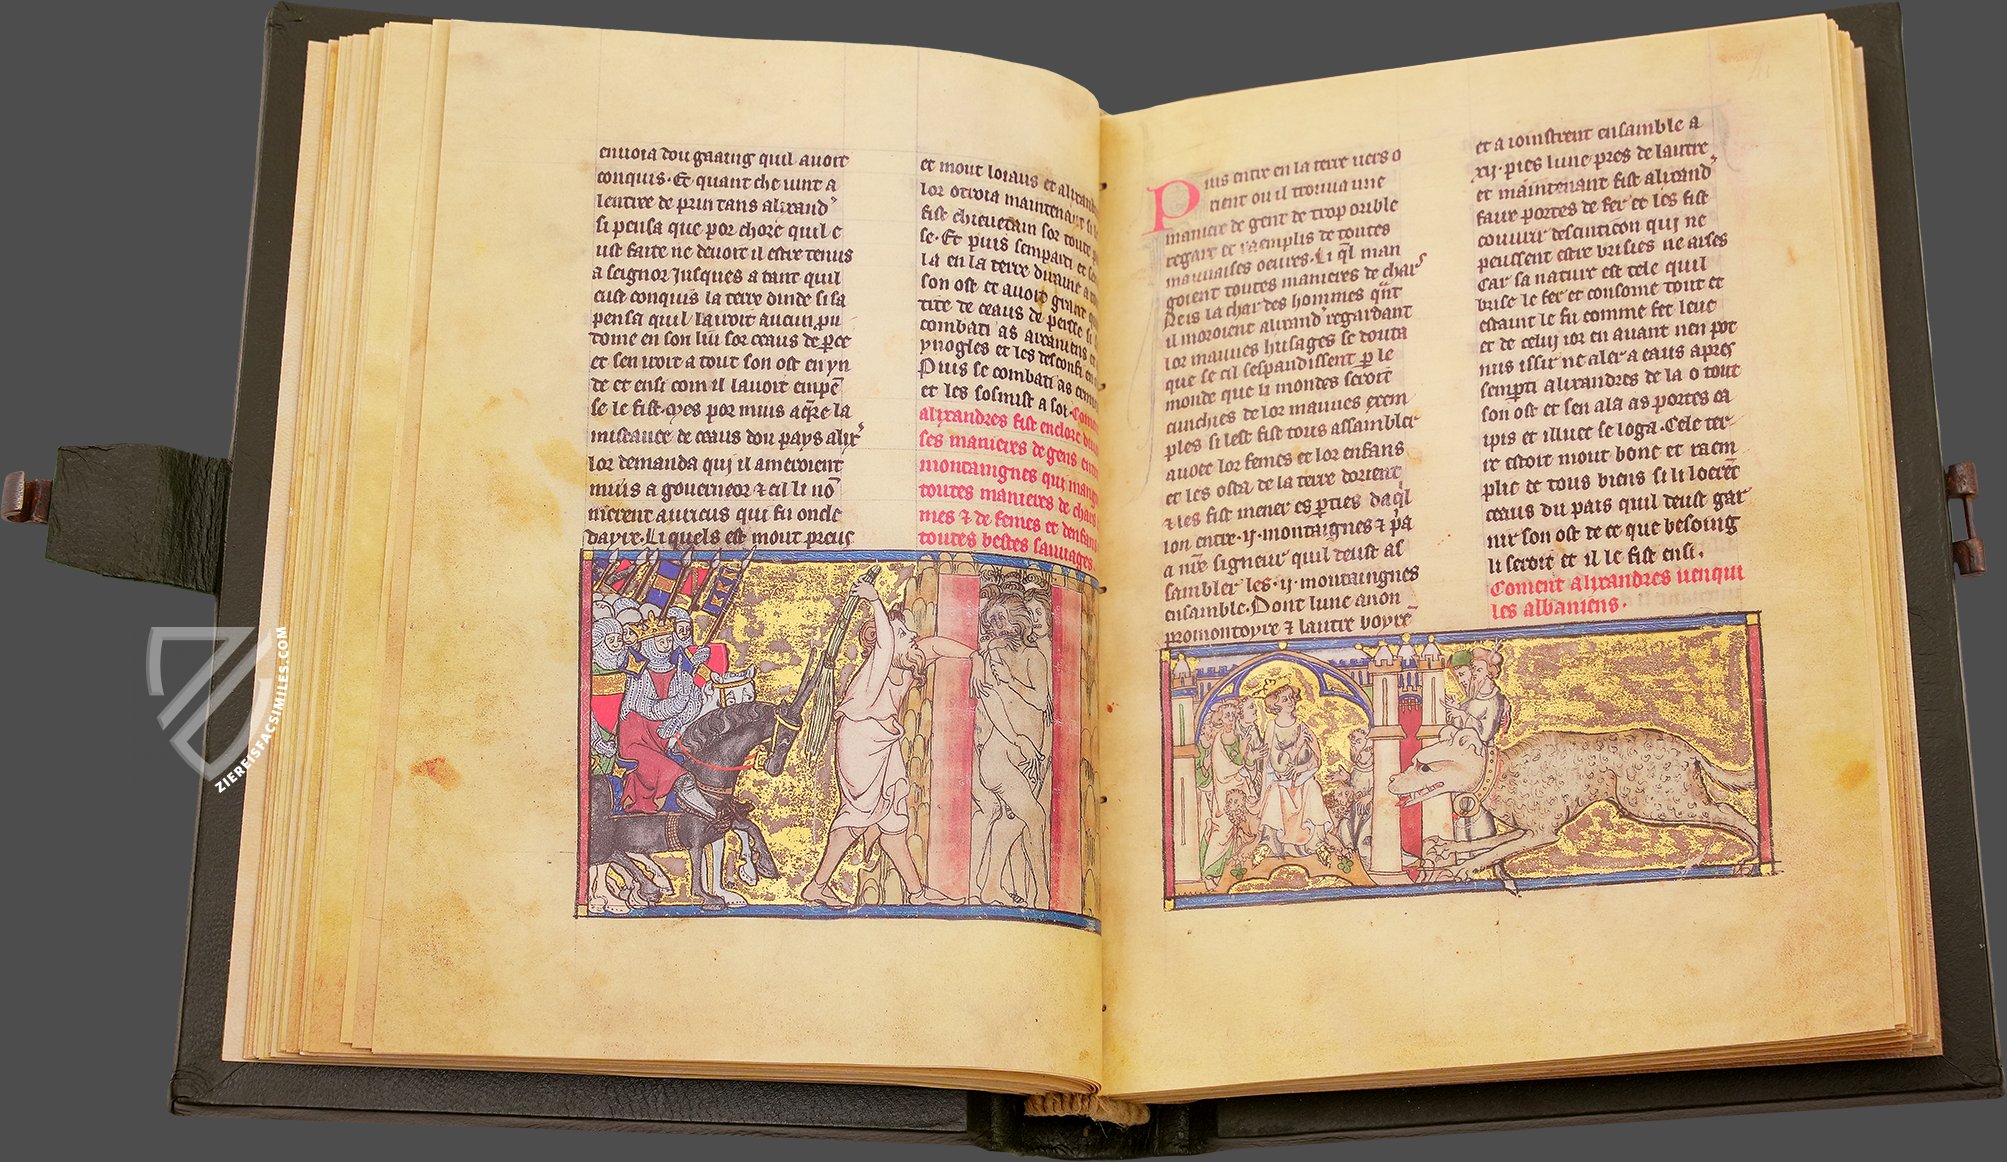 enuoia dou gaaing quil auoit
conquis. Et quant che uint a
lentree de prin tans alixand'
si pensa que por chose quil e
ust faite ne deuoit il estre tenus
a seignor Jusques a tant quil
eust conquis la terre dinde si sa
pensa quil lairoit aucun pu
dome en son liu sor ceaus de pce
et sen iroit a tout son ost en yn
de et ensi com il lauoit empē
se le fist. Mes por mius aqre la
miseauce de ceaus dou pays alix'
lor demanda qui il ameroient
miūs a gouerneor ⁊ cil li nō
merent aureus qui fu oncle
dayre. Li quels est mout preus
et mout loiaus et alixand
lor otroia maintenant si le
fist cheuetain sor toute p
se. Et puis semparti et sen
la en la terre
son ost et auoit grant
tite de ceaus de perse si
combati as
ynogles et les desconfi en
Puis se combati as
et les sosmist a soi. Coment
alixandres fist enclore diuer
ses manieres de gens entre
montaingnes qui mang
toutes manieres de chars
mes ⁊ de femes et denfans
toutes bestes sauuages.
Puis entre en la terre uers o
rient ou il trouua une
maniere de gent de trop orible
regart et raemplis de toutes
mauuaises oeures. Li ql man
goient toutes manieres de chars
Neis la char des hommes qnt
il moroient alixand' regardant
lor mauues husages se douta
que se cil sespandissent p le
monde que li mondes seroit
cunchies de lor mauues exem
ples si lest fist tous assambler
auoec lor femes et lor enfans
et les osta de la terre dorient
⁊ les fist mener es pties daql
lon entre .ij. montaignes ⁊ pa
a nre signeur quil deust as
sambler les .ij. montaingnes
ensamble. Dont lune a non
promontoyre ⁊ lautre boyre
et a iouistrent ensamble a
xij. pies lune pres de lautre
et maintenant fist alixand'
faire portes de fer et les fist
couurir desinticon qui ne
peussent estre brisies ne arses
Car sa nature est tele quil
brise le fer et consome tout et
estaint le fu comme fer leue
et de celui ior en auant nen pot
nus issir ne aler a eaus apres
sempti alixandres de la o tout
son ost et sen ala as portes ca
ipis et illuec se loga. Cele ter
re estoit mout bone et raem
plie de tous biens si li loerēt
ceaus du pais quil deust gar
nir son ost de ce que besoing
li seroit et il le fist ensi.
Coment alixandres uenqui
les albaniens.
ZIEREISFACSIMILES.COM